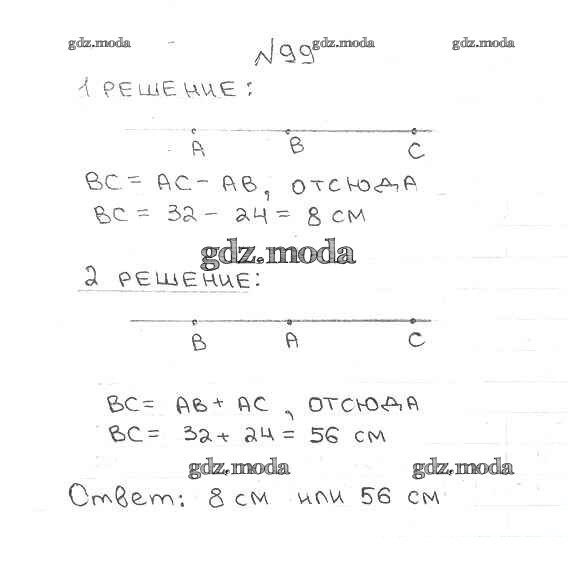 gdz.moda
N99
gdz.moda
gdz.moda
1 РЕШЕНИЕ:
A B C
BC = AC - AB, ОТСЮДА
BC = 32 - 24 = 8 СМ
gdz.moda
2 РЕШЕНИЕ:
B A C
BC = AB + AC, ОТСЮДА
BC = 32 + 24 = 56 СМ
gdz.moda
gdz.moda
Ответ: 8 см или 56 см